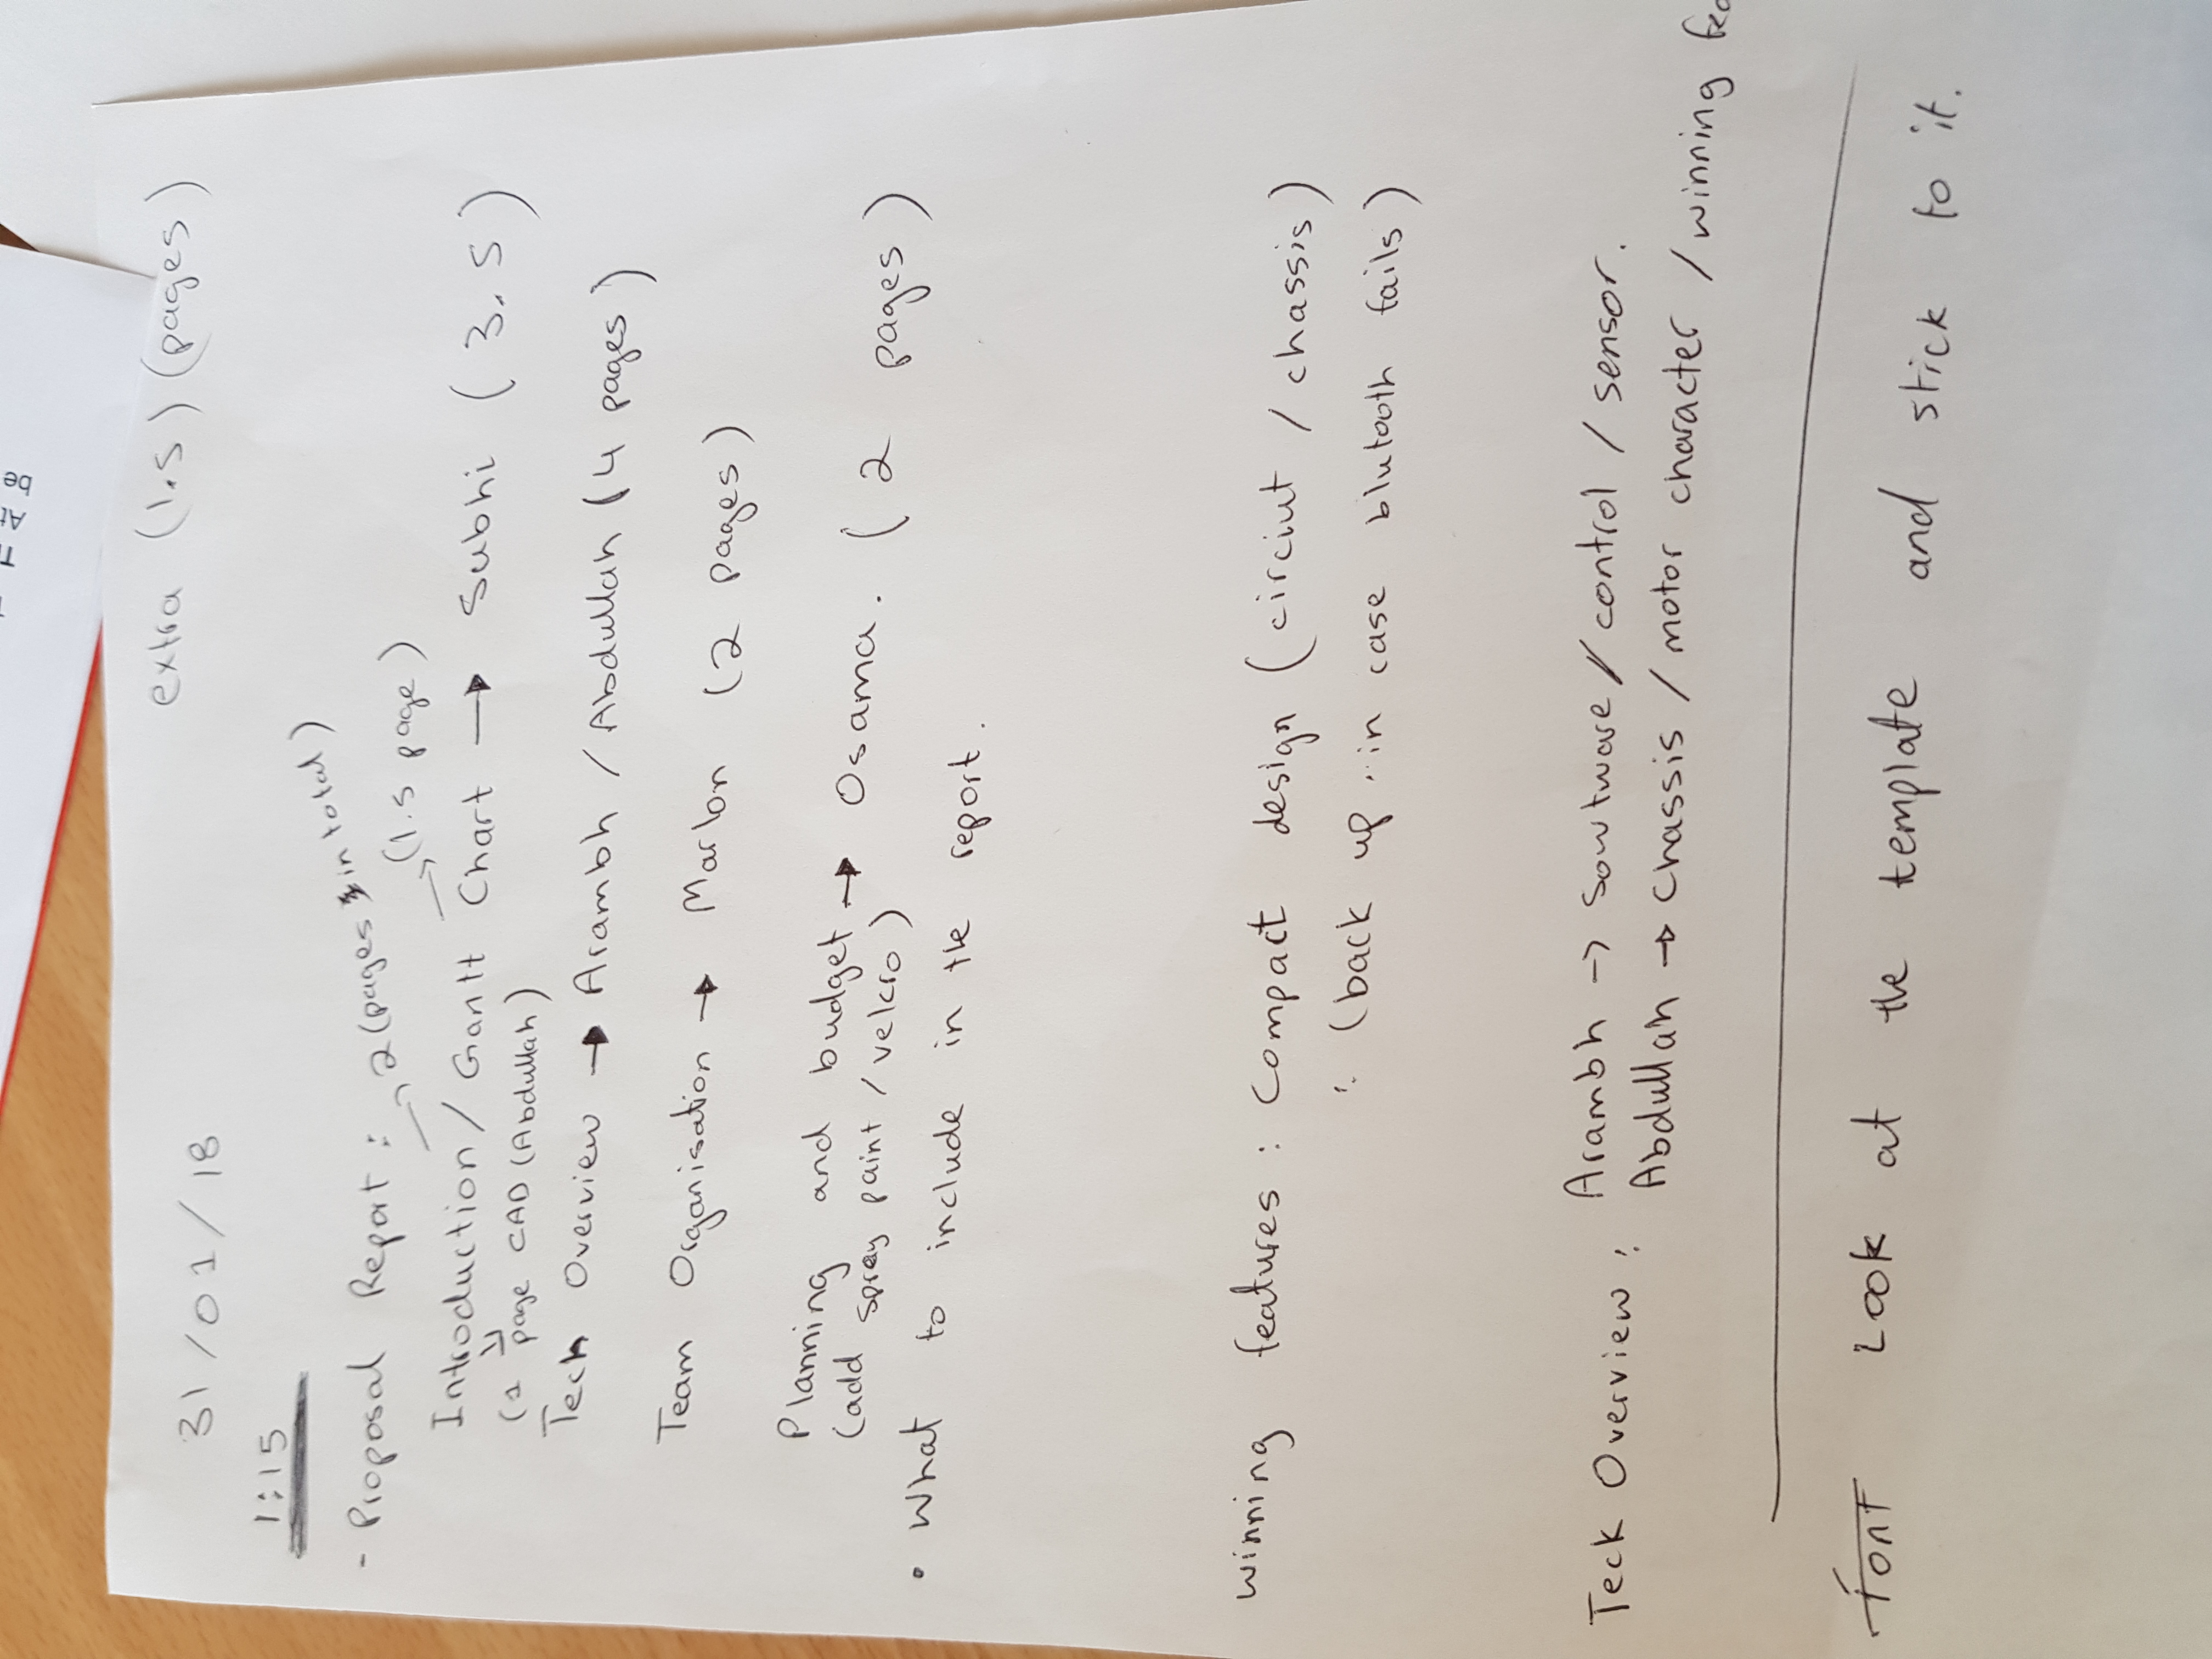 At
be
extra (1.5) (pages)
31/01/18
1:15
- Proposal Report :
2 (pages in total)
(1.5 page)
Introduction / Gantt Chart → Subhi (3.5)
(1 page CAD (Abdullah)
Tech Overview → Arambh / Abdullah (4 pages)
Team Organisation → Marlon (2 pages)
Planning and budget → Osama. (2 pages)
(add spray paint / velcro)
• What to include in the report.
winning features : Compact design (circiut / chassis)
: (back up in case blutooth fails)
Teck Overview : Arambh → Sowtware / control / sensor.
Abdullah → Chassis / motor character / winning fea
font Look at the template and stick to it.